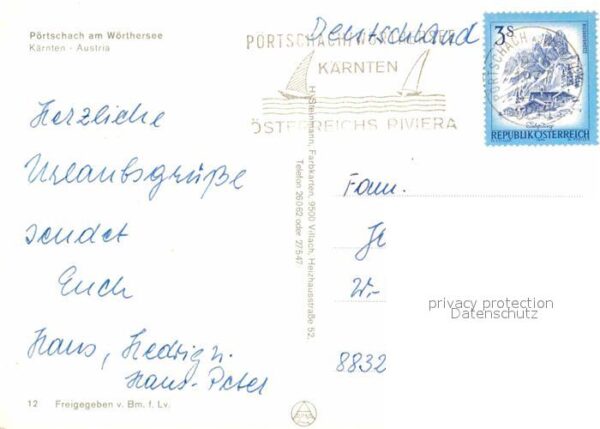 Pörtschach am Wörthersee
Kärnten - Austria
Herzliche
Urlaubsgrüße
sendet
Euch
Hans, Hedwig u.
Hans-Peter
12 Freigegeben v. Bm. f. Lv.
H. Steinmann, Farbkarten, 9500 Villach, Heizhausstraße 52,
Telefon 26062 oder 27547
Deutschland
PÖRTSCHACH/WÖRTHERSEE
KÄRNTEN
ÖSTERREICHS RIVIERA
PÖRTSCHACH
3 S
REPUBLIK ÖSTERREICH
Fam.
W.-
8832
privacy protection
Datenschutz